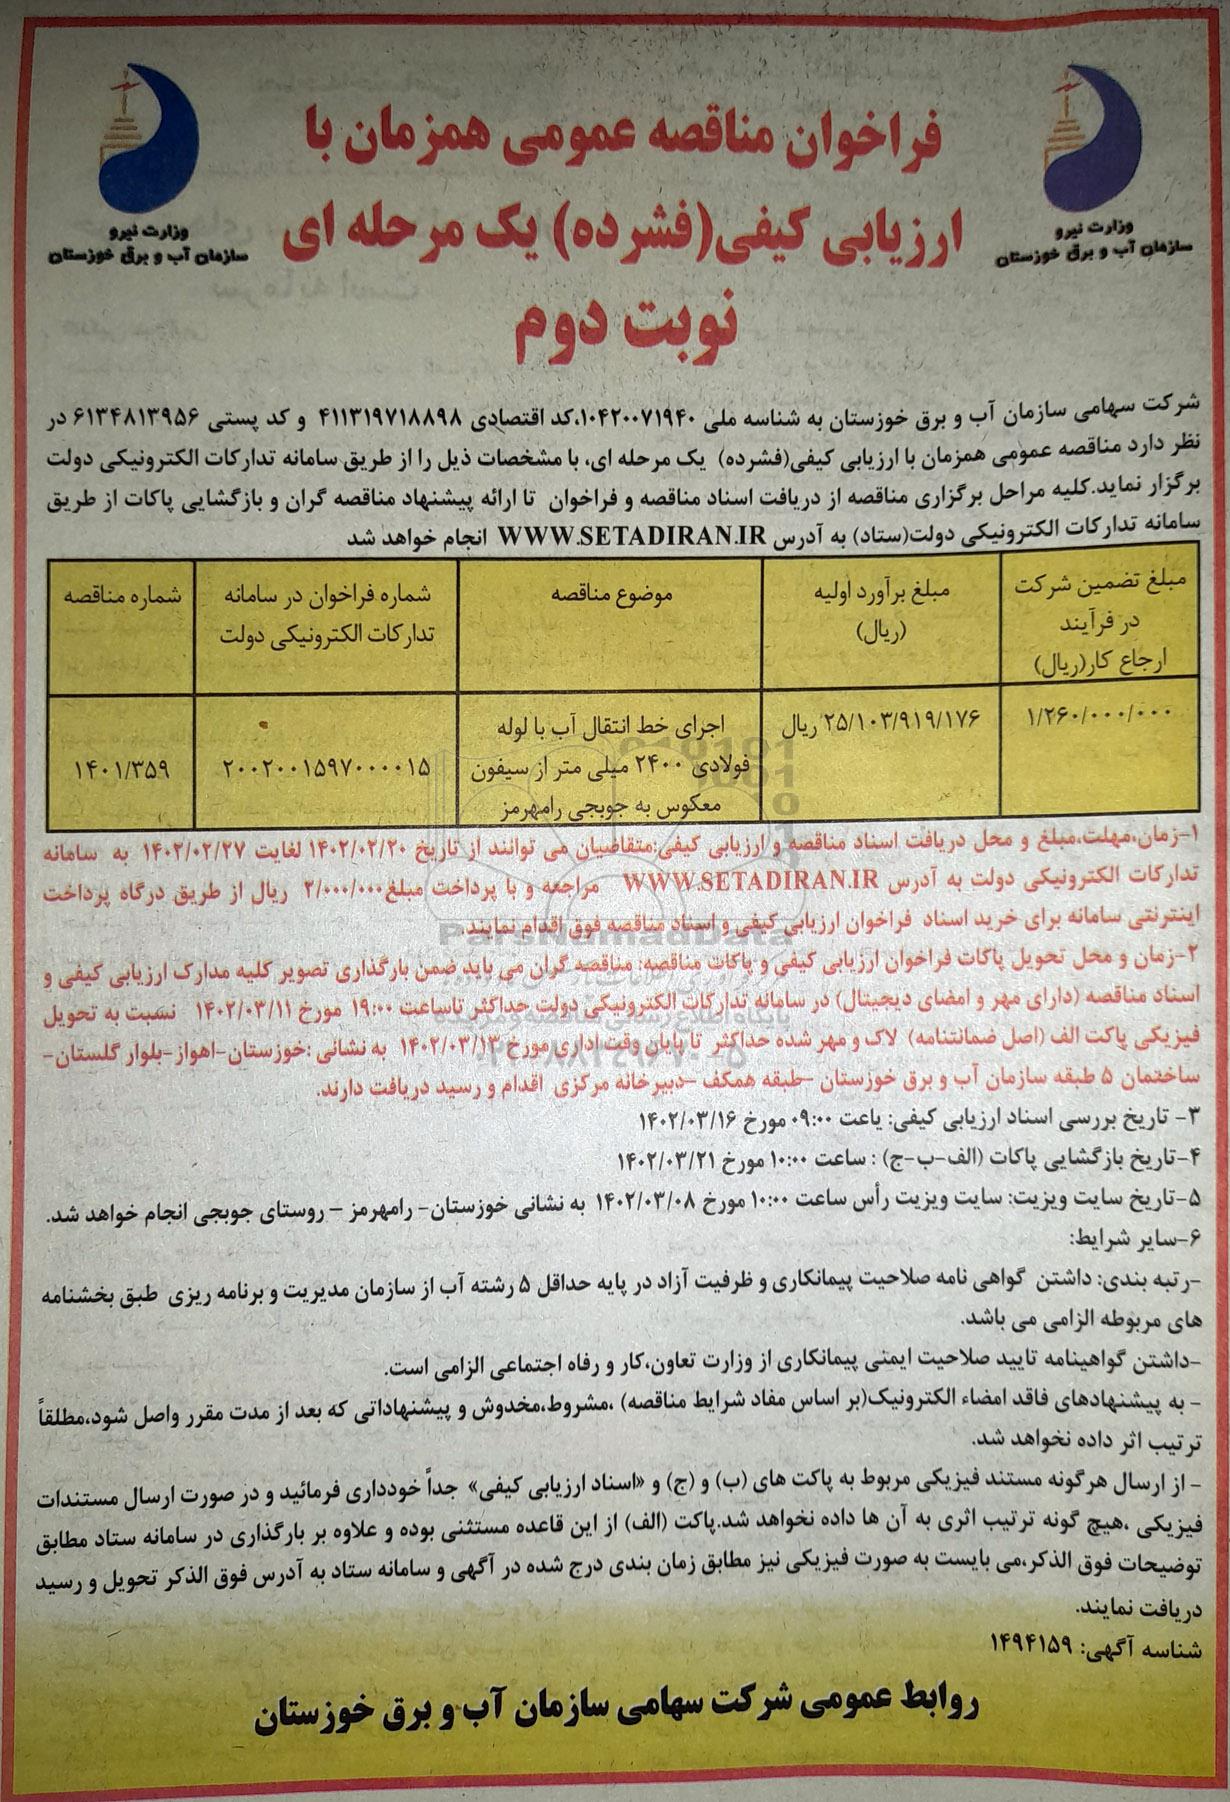 فراخوان مناقصه عمومی همزمان با
ارزیابی کیفی(فشرده) یک مرحله ای
نوبت دوم
وزارت نیرو
سازمان آب و برق خوزستان
وزارت نیرو
سازمان آب و برق خوزستان
شرکت سهامی سازمان آب و برق خوزستان به شناسه ملی ۱۰۴۲۰۰۷۱۹۴۰،کد اقتصادی ۴۱۱۳۱۹۷۱۸۸۹۸ و کد پستی ۶۱۳۴۸۱۳۹۵۶ در
نظر دارد مناقصه عمومی همزمان با ارزیابی کیفی(فشرده) یک مرحله ای، با مشخصات ذیل را از طریق سامانه تدارکات الکترونیکی دولت
برگزار نماید.کلیه مراحل برگزاری مناقصه از دریافت اسناد مناقصه و فراخوان تا ارائه پیشنهاد مناقصه گران و بازگشایی پاکات از طریق
سامانه تدارکات الکترونیکی دولت(ستاد) به آدرس WWW.SETADIRAN.IR انجام خواهد شد
مبلغ تضمین شرکت
در فرآیند
ارجاع کار(ریال)
مبلغ برآورد اولیه
(ریال)
موضوع مناقصه
شماره فراخوان در سامانه
تدارکات الکترونیکی دولت
شماره مناقصه
۱/۲۶۰/۰۰۰/۰۰۰
۲۵/۱۰۳/۹۱۹/۱۷۶ ریال
اجرای خط انتقال آب با لوله
فولادی ۲۴۰۰ میلی متر از سیفون
معکوس به جوبجی رامهرمز
۲۰۰۲۰۰۱۵۹۷۰۰۰۰۱۵
۱۴۰۱/۳۵۹
۱-زمان،مهلت،مبلغ و محل دریافت اسناد مناقصه و ارزیابی کیفی:متقاضیان می توانند از تاریخ ۱۴۰۲/۰۲/۲۰ لغایت ۱۴۰۲/۰۲/۲۷ به سامانه
تدارکات الکترونیکی دولت به آدرس WWW.SETADIRAN.IR مراجعه و با پرداخت مبلغ۲/۰۰۰/۰۰۰ ریال از طریق درگاه پرداخت
اینترنتی سامانه برای خرید اسناد فراخوان ارزیابی کیفی و اسناد مناقصه فوق اقدام نمایند.
۲-زمان و محل تحویل پاکات فراخوان ارزیابی کیفی و پاکات مناقصه: مناقصه گران می باید ضمن بارگذاری تصویر کلیه مدارک ارزیابی کیفی و
اسناد مناقصه (دارای مهر و امضای دیجیتال) در سامانه تدارکات الکترونیکی دولت حداکثر تاساعت ۱۹:۰۰ مورخ ۱۴۰۲/۰۳/۱۱ نسبت به تحویل
فیزیکی پاکت الف (اصل ضمانتنامه) لاک و مهر شده حداکثر تا پایان وقت اداری مورخ ۱۴۰۲/۰۳/۱۳ به نشانی :خوزستان-اهواز-بلوار گلستان-
ساختمان ۵ طبقه سازمان آب و برق خوزستان -طبقه همکف -دبیرخانه مرکزی اقدام و رسید دریافت دارند.
۳- تاریخ بررسی اسناد ارزیابی کیفی: یاعت ۰۹:۰۰ مورخ ۱۴۰۲/۰۳/۱۶
۴-تاریخ بازگشایی پاکات (الف-ب-ج) : ساعت ۱۰:۰۰ مورخ ۱۴۰۲/۰۳/۲۱
۵-تاریخ سایت ویزیت: سایت ویزیت رأس ساعت ۱۰:۰۰ مورخ ۱۴۰۲/۰۳/۰۸ به نشانی خوزستان- رامهرمز – روستای جوبجی انجام خواهد شد.
۶-سایر شرایط:
-رتبه بندی: داشتن گواهی نامه صلاحیت پیمانکاری و ظرفیت آزاد در پایه حداقل ۵ رشته آب از سازمان مدیریت و برنامه ریزی طبق بخشنامه
های مربوطه الزامی می باشد.
-داشتن گواهینامه تایید صلاحیت ایمنی پیمانکاری از وزارت تعاون،کار و رفاه اجتماعی الزامی است.
- به پیشنهادهای فاقد امضاء الکترونیک(بر اساس مفاد شرایط مناقصه) ،مشروط،مخدوش و پیشنهاداتی که بعد از مدت مقرر واصل شود،مطلقاً
ترتیب اثر داده نخواهد شد.
- از ارسال هرگونه مستند فیزیکی مربوط به پاکت های (ب) و (ج) و «اسناد ارزیابی کیفی» جداً خودداری فرمائید و در صورت ارسال مستندات
فیزیکی ،هیچ گونه ترتیب اثری به آن ها داده نخواهد شد.پاکت (الف) از این قاعده مستثنی بوده و علاوه بر بارگذاری در سامانه ستاد مطابق
توضیحات فوق الذکر،می بایست به صورت فیزیکی نیز مطابق زمان بندی درج شده در آگهی و سامانه ستاد به آدرس فوق الذکر تحویل و رسید
دریافت نمایند.
شناسه آگهی: ۱۴۹۴۱۵۹
روابط عمومی شرکت سهامی سازمان آب و برق خوزستان
ParsNamadData